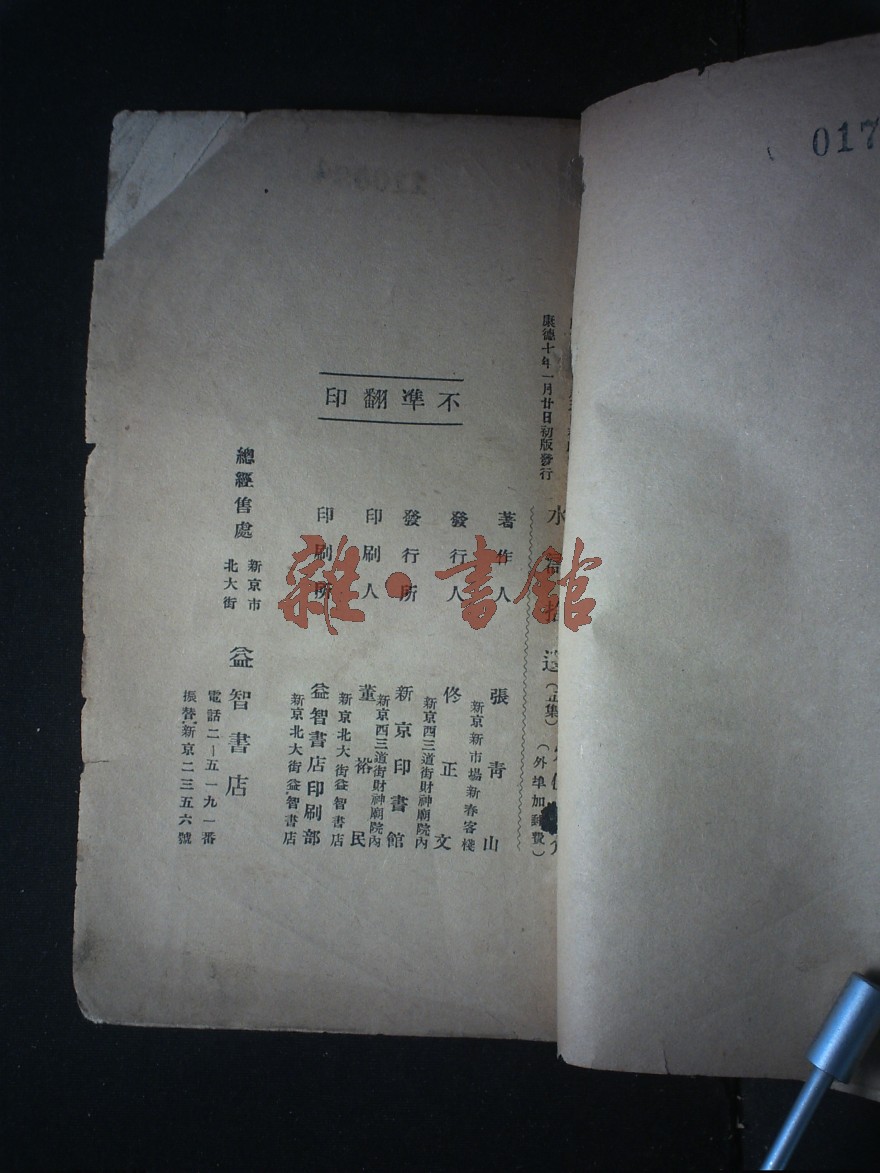 017
康德十年一月廿日初版發行
水滸拾遺（正集）
（外埠加郵費）
不準翻印
著作人 張青山
新京新市場新春客棧
發行人 佟正文
新京西三道街財神廟院內
發行所 新京印書館
新京西三道街財神廟院內
印刷人 董裕民
新京北大街益智書店
印刷所 益智書店印刷部
新京北大街益智書店
總經售處 新京市北大街 益智書店
電話二—五一九一番
振替新京二三五六號
雜·書館